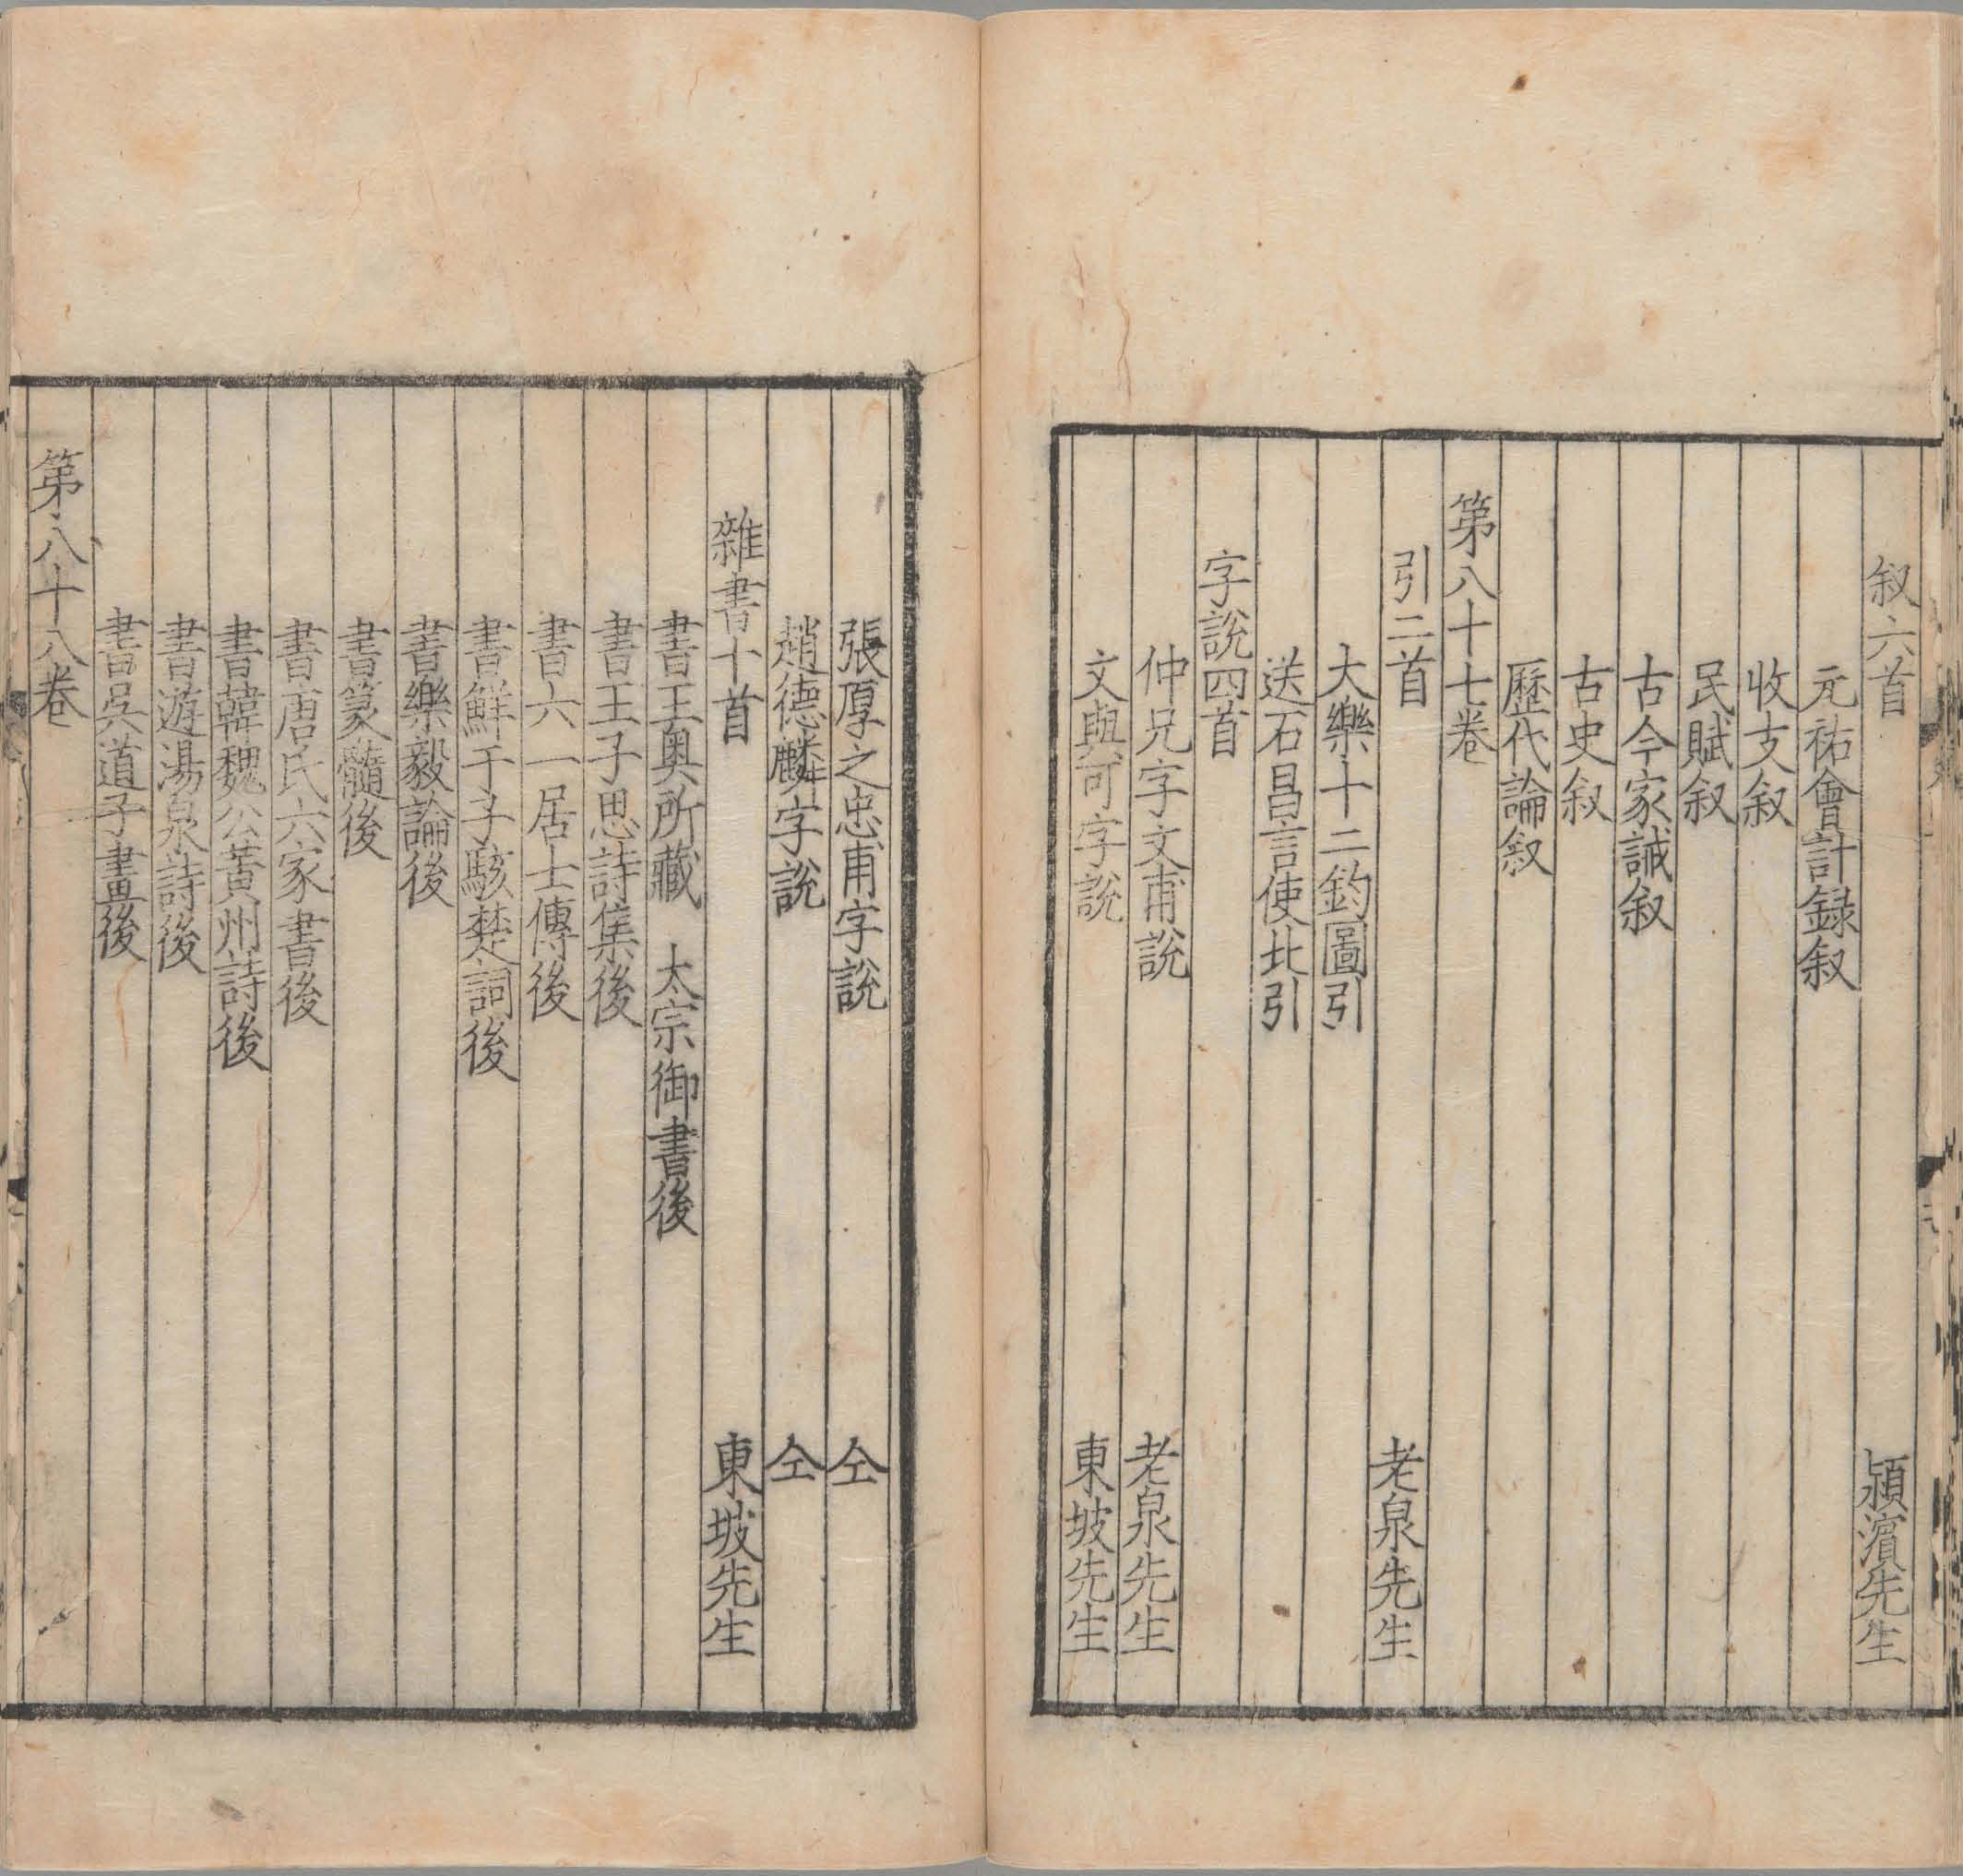 叙六首 潁濱先生
元祐會計録叙
收支叙
民賦叙
古今家誡叙
古史叙
歷代論叙
第八十七卷
引二首 老泉先生
大樂十二鈞圖引
送石昌言使北引
字說四首
仲兄字文甫說 老泉先生
文與可字說 東坡先生
張厚之忠甫字說 仝
趙德麟字說 仝
雜書十首 東坡先生
書王奥所藏 太宗御書後
書王子思詩集後
書六一居士傳後
書鮮于子駿楚詞後
書樂毅論後
書篆髓後
書唐氏六家書後
書韓魏公黃州詩後
書遊湯泉詩後
書吳道子畫後
第八十八卷